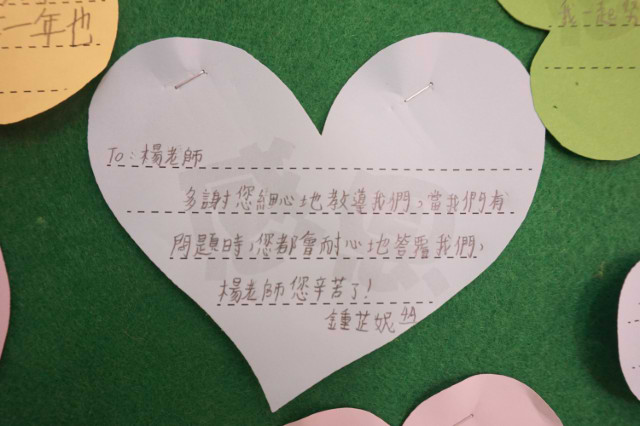 一年也
我一起努
To：楊老師
多謝您細心地教導我們，當我們有
問題時，您都會耐心地答覆我們，
楊老師您辛苦了！
鍾芷妮 4A